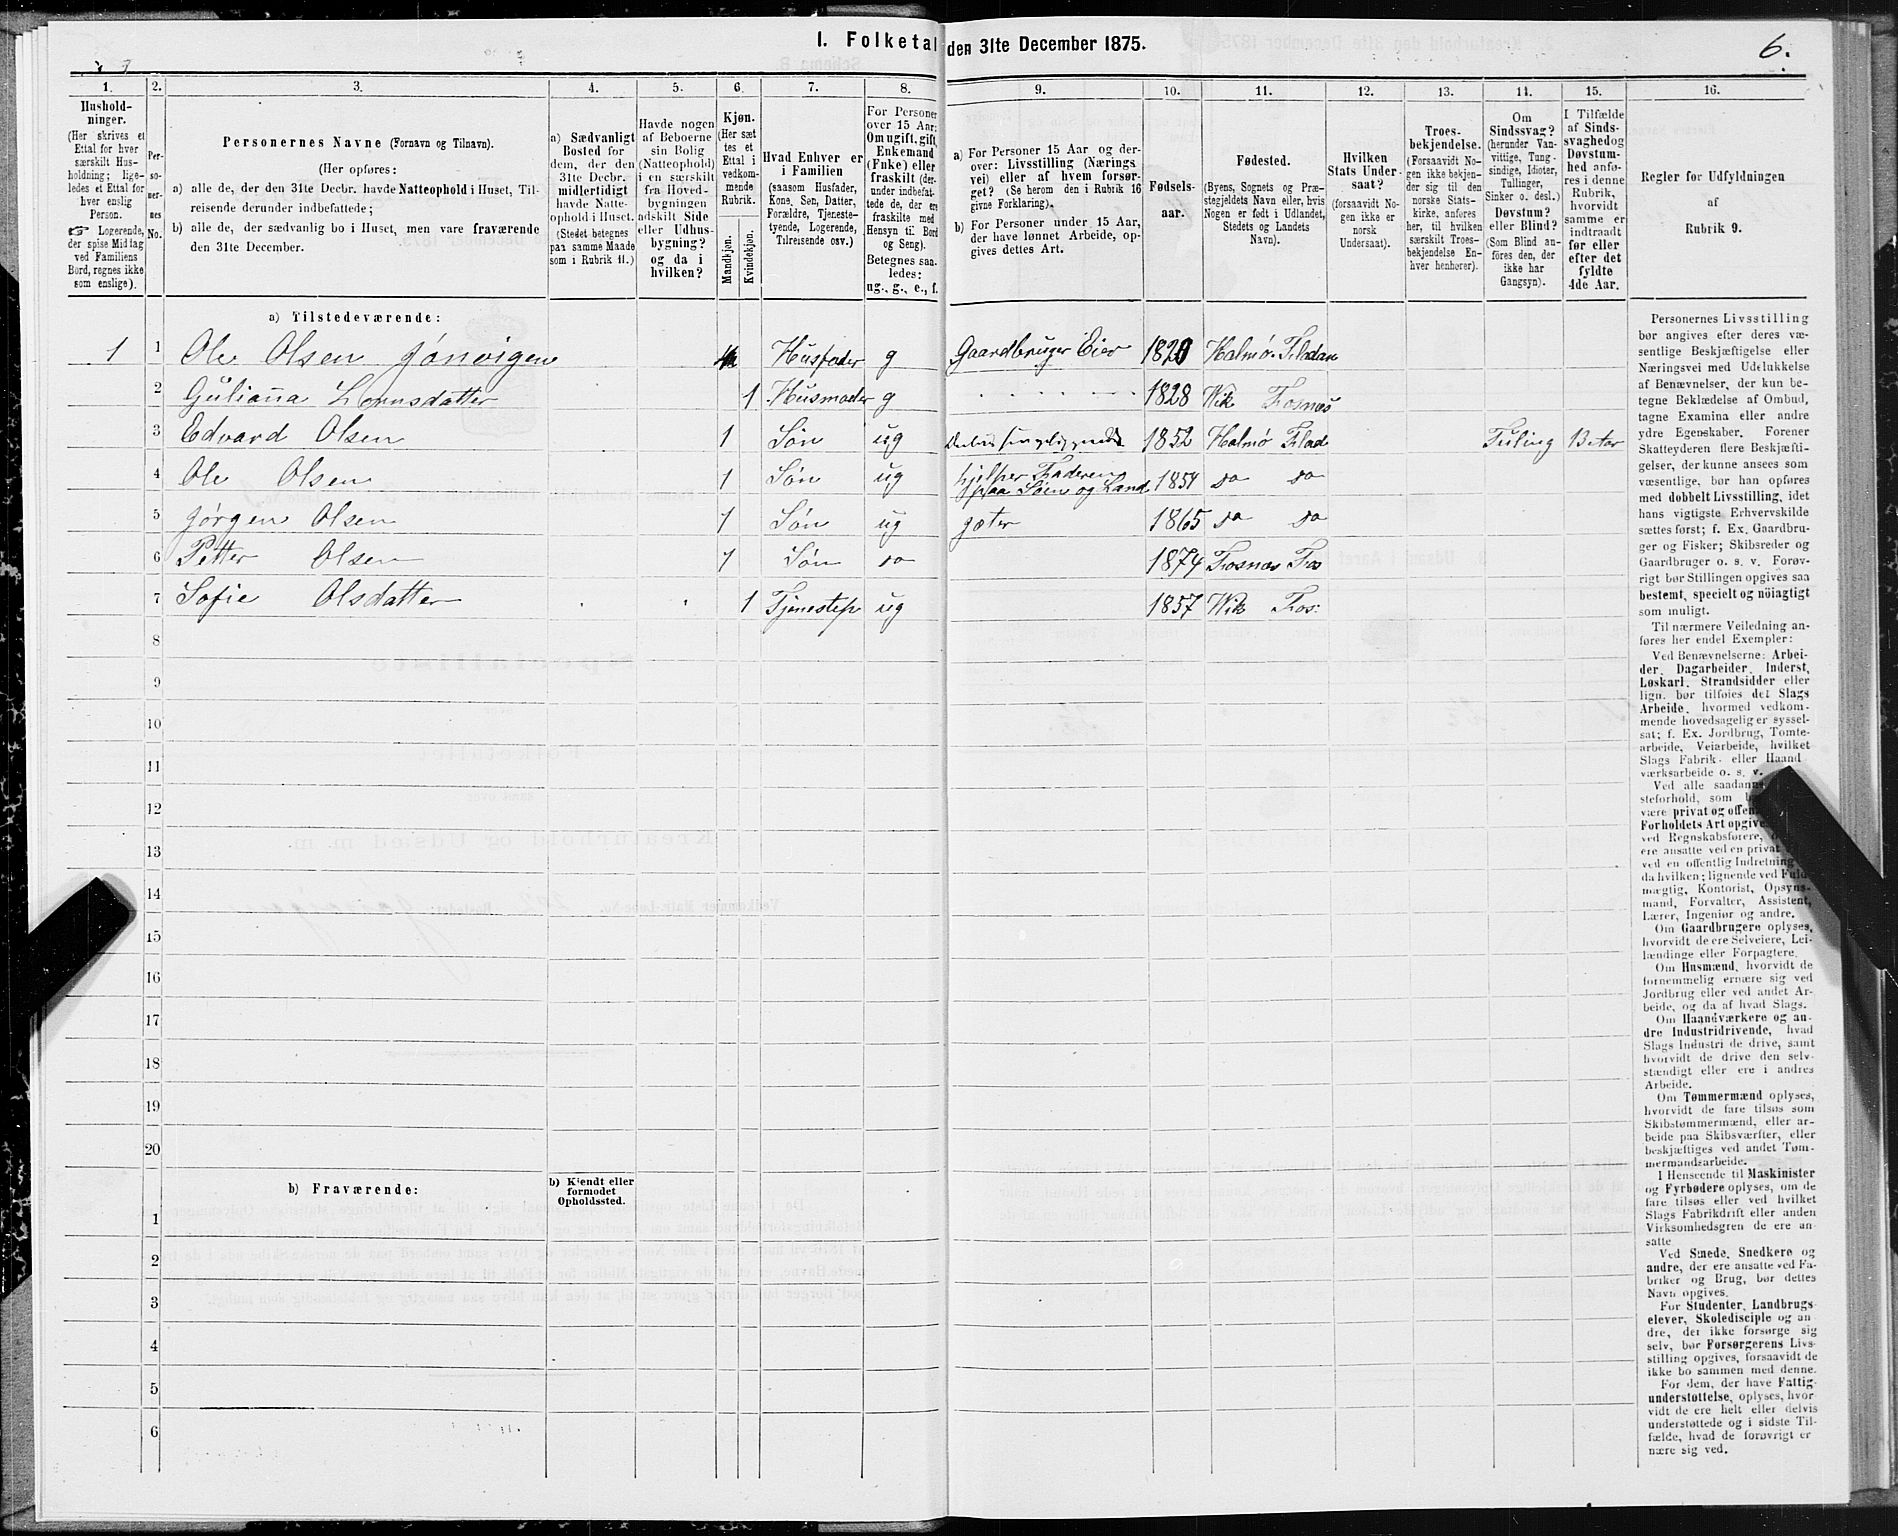 I. Folketal den 31te December 1875.
6.
1.
2.
3.
4.
5.
6.
7.
8.
9.
10.
11.
12.
13.
14.
15.
16.
Hushold-
ninger.
(Her skrives et
Ettal for hver
særskilt Hus-
holdning; lige-
ledes et Ettal for
hver enslig
Person.
☞ Logerende,
der spise Middag
ved Familiens
Bord, regnes ikke
som enslige).
Per-
so-
ner-
nes
No.
Personernes Navne (Fornavn og Tilnavn).
(Her opføres:
a) alle de, der den 31te Decbr. havde Natteophold i Huset, Til-
reisende derunder indbefattede;
b) alle de, der sædvanlig bo i Huset, men vare fraværende
den 31te December.
a) Sædvanligt
Bosted for
dem, der den
31te Decbr.
midlertidigt
havde Natte-
ophold i Huset.
(Stedet betegnes
paa samme Maade
som i Rubrik 11.)
Havde nogen
af Beboerne
sin Bolig
(Natteophold)
i en særskilt
fra Hoved-
bygningen
adskilt Side
eller Udhus-
bygning?
og da i
hvilken?
Kjøn.
(Her sæt
tes et
Ettal i
vedkom-
mende
Rubrik.
Mandkjøn.
Kvindekjøn.
Hvad Enhver er
i Familien
(saasom Husfader,
Kone, Søn, Datter,
Forældre, Tjeneste-
tyende, Logerende,
Tilreisende osv.)
For Personer
over 15 Aar:
Om ugift, gift,
Enkemand
(Enke) eller
fraskilt (der-
under indbefat-
tede de, der ere
fraskilte med
Hensyn til Bord
og Seng).
Betegnes saa-
ledes:
ug., g., e., f.
a) For Personer 15 Aar og der-
over: Livsstilling (Nærings
vei) eller af hvem forsør-
get? (Se herom den i Rubrik 16
givne Forklaring).
b) For Personer under 15 Aar,
der have lønnet Arbeide, op-
gives dettes Art.
Fødsels-
aar.
Fødested.
(Byens, Sognets og Præ-
stegjeldets Navn eller, hvis
Nogen er født i Udlandet,
Stedets og Landets
Navn).
Hvilken
Stats Under-
saat?
(forsaavidt No-
gen ikke er
norsk
Undersaat).
Troes-
bekjendelse.
(Forsaavidt No-
gen ikke bekjen-
der sig til den
norske Stats-
kirke, anføres
her, til hvilken
særskilt Troes-
bekjendelse En-
hver henhører).
Om
Sindssvag?
(herunder Van-
vittige, Tung-
sindige, Idioter,
Tullinger,
Sinker o. desl.)
Døvstum?
eller Blind?
(Som Blind an-
føres den, der
ikke har
Gangsyn).
I Tilfælde
af Sinds-
svaghed og
Døvstum-
hed anfø-
res i denne
Rubrik,
hvorvidt
samme er
indtraadt
før eller
efter det
fyldte
4de Aar.
Regler for Udfyldningen
af
Rubrik 9.
a) Tilstedeværende:
1 1 Ole Olsen Jønvigen 1 Husfader g Gaardbruger Eier 1820 Halmø Fladan
2 Guliana 1 Husmoder g 1828 Wik Fosnæs
3 Edvard Olsen 1 Søn ug 1852 Halmø Flad Tuling
4 Ole Olsen 1 Søn ug hjelper Faderen paa Søen og Land 1854 do do
5 Jørgen Olsen 1 Søn ug gæter 1865 do do
6 Petter Olsen 1 Søn do 1874 Fosnæs Fos
7 Sofie Olsdatter 1 Tjenestep ug 1857 Wik Fos:
8
9
10
11
12
13
14
15
16
17
18
19
20
b) Fraværende:
b) Kjendt eller
formodet
Opholdssted.
1
2
3
4
5
6
Personernes Livsstilling
bør angives efter deres væ-
sentlige Beskjæftigelse eller
Næringsvei med Udelukkelse
af Benævnelser, der kun be-
tegne Beklædelse af Ombud,
tagne Examina eller andre
ydre Egenskaber. Forener
Skatteyderen flere Beskjæfti-
gelser, der kunne ansees som
væsentlige, bør han opføres
med dobbelt Livsstilling, idet
hans vigtigste Erhvervskilde
sættes først; f. Ex. Gaardbru-
ger og Fisker; Skibsreder og
Gaardbruger o. s. v. Forøv-
rigt bør Stillingen opgives saa
bestemt, specielt og nöiagtigt
som muligt.
Til nærmere Veiledning an-
føres her endel Exempler:
Ved Benævnelserne: Arbei-
der, Dagarbeider, Inderst,
Løskarl, Strandsidder eller
lign. bør tilføies det Slags
Arbeide, hvormed vedkom-
mende hovedsagelig er syssel-
sat; f. Ex. Jordbrug, Tomte-
arbeide, Veiarbeide, hvilket
Slags Fabrik- eller Haand
værksarbeide o. s. v.
Ved alle saadanne
steforhold, som
være privat og offen
Forholdets Art opgive
ved Regnskabsførere,
ere ansatte ved en privat
ved en offentlig Indretning
da hvilken; lignende ved Fuld
mægtig, Kontorist, Opsyns-
mand, Forvalter, Assistent,
Lærer, Ingeniør og andre.
Om Gaardbrugere oplyses,
hvorvidt de ere Selveiere, Lei-
lændinge eller Forpagtere.
Om Husmænd, hvorvidt de
fornemmelig ernære sig ved
Jordbrug eller ved andet Ar-
beide, og da af hvad Slags.
Om Haandværkere og an-
dre Industridrivende, hvad
Slags Industri de drive, samt
hvorvidt de drive den selv-
stændigt eller ere i andres
Arbeide.
Om Tømmermænd oplyses,
hvorvidt de fare tilsøs som
Skibstømmermænd, eller ar-
beide paa Skibsværfter, eller
beskjæftiges ved andet Tøm-
mermandsarbeide.
I Henseende til Maskinister
og Fyrbødere oplyses, om de
fare tilsøs eller ved hvilket
Slags Fabrikdrift eller anden
Virksomhedsgren de ere an-
satte
Ved Smede, Snedkere og
andre, der ere ansatte ved Fa-
briker og Brug, bør dettes
Navn opgives.
For Studenter, Landbrugs
elever, Skoledisciple og an-
dre, der ikke forsørge sig
selv, bør Forsørgerens Livs-
stilling opgives, forsaavidt de
ikke bo sammen med denne.
For dem, der have Fattig-
understøttelse, oplyses, hvor-
vidt de ere helt eller delvis
understøttede og i sidste Til-
fælde, hvad de forøvrigt er
nære sig ved.